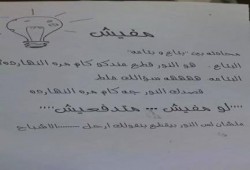 مفيش
محادثه بين بتاع و بتاعه
البتاع : هو النور قطع عندكو كام مره النهارده؟
البتاعه: ههههه سؤالك غلط
قصدك النور جه كام مره النهارده
****لو مفيش ... متدفعيش****
علشان لمى النور بيقطع بنقولك ارحل ــــــ الاشباح